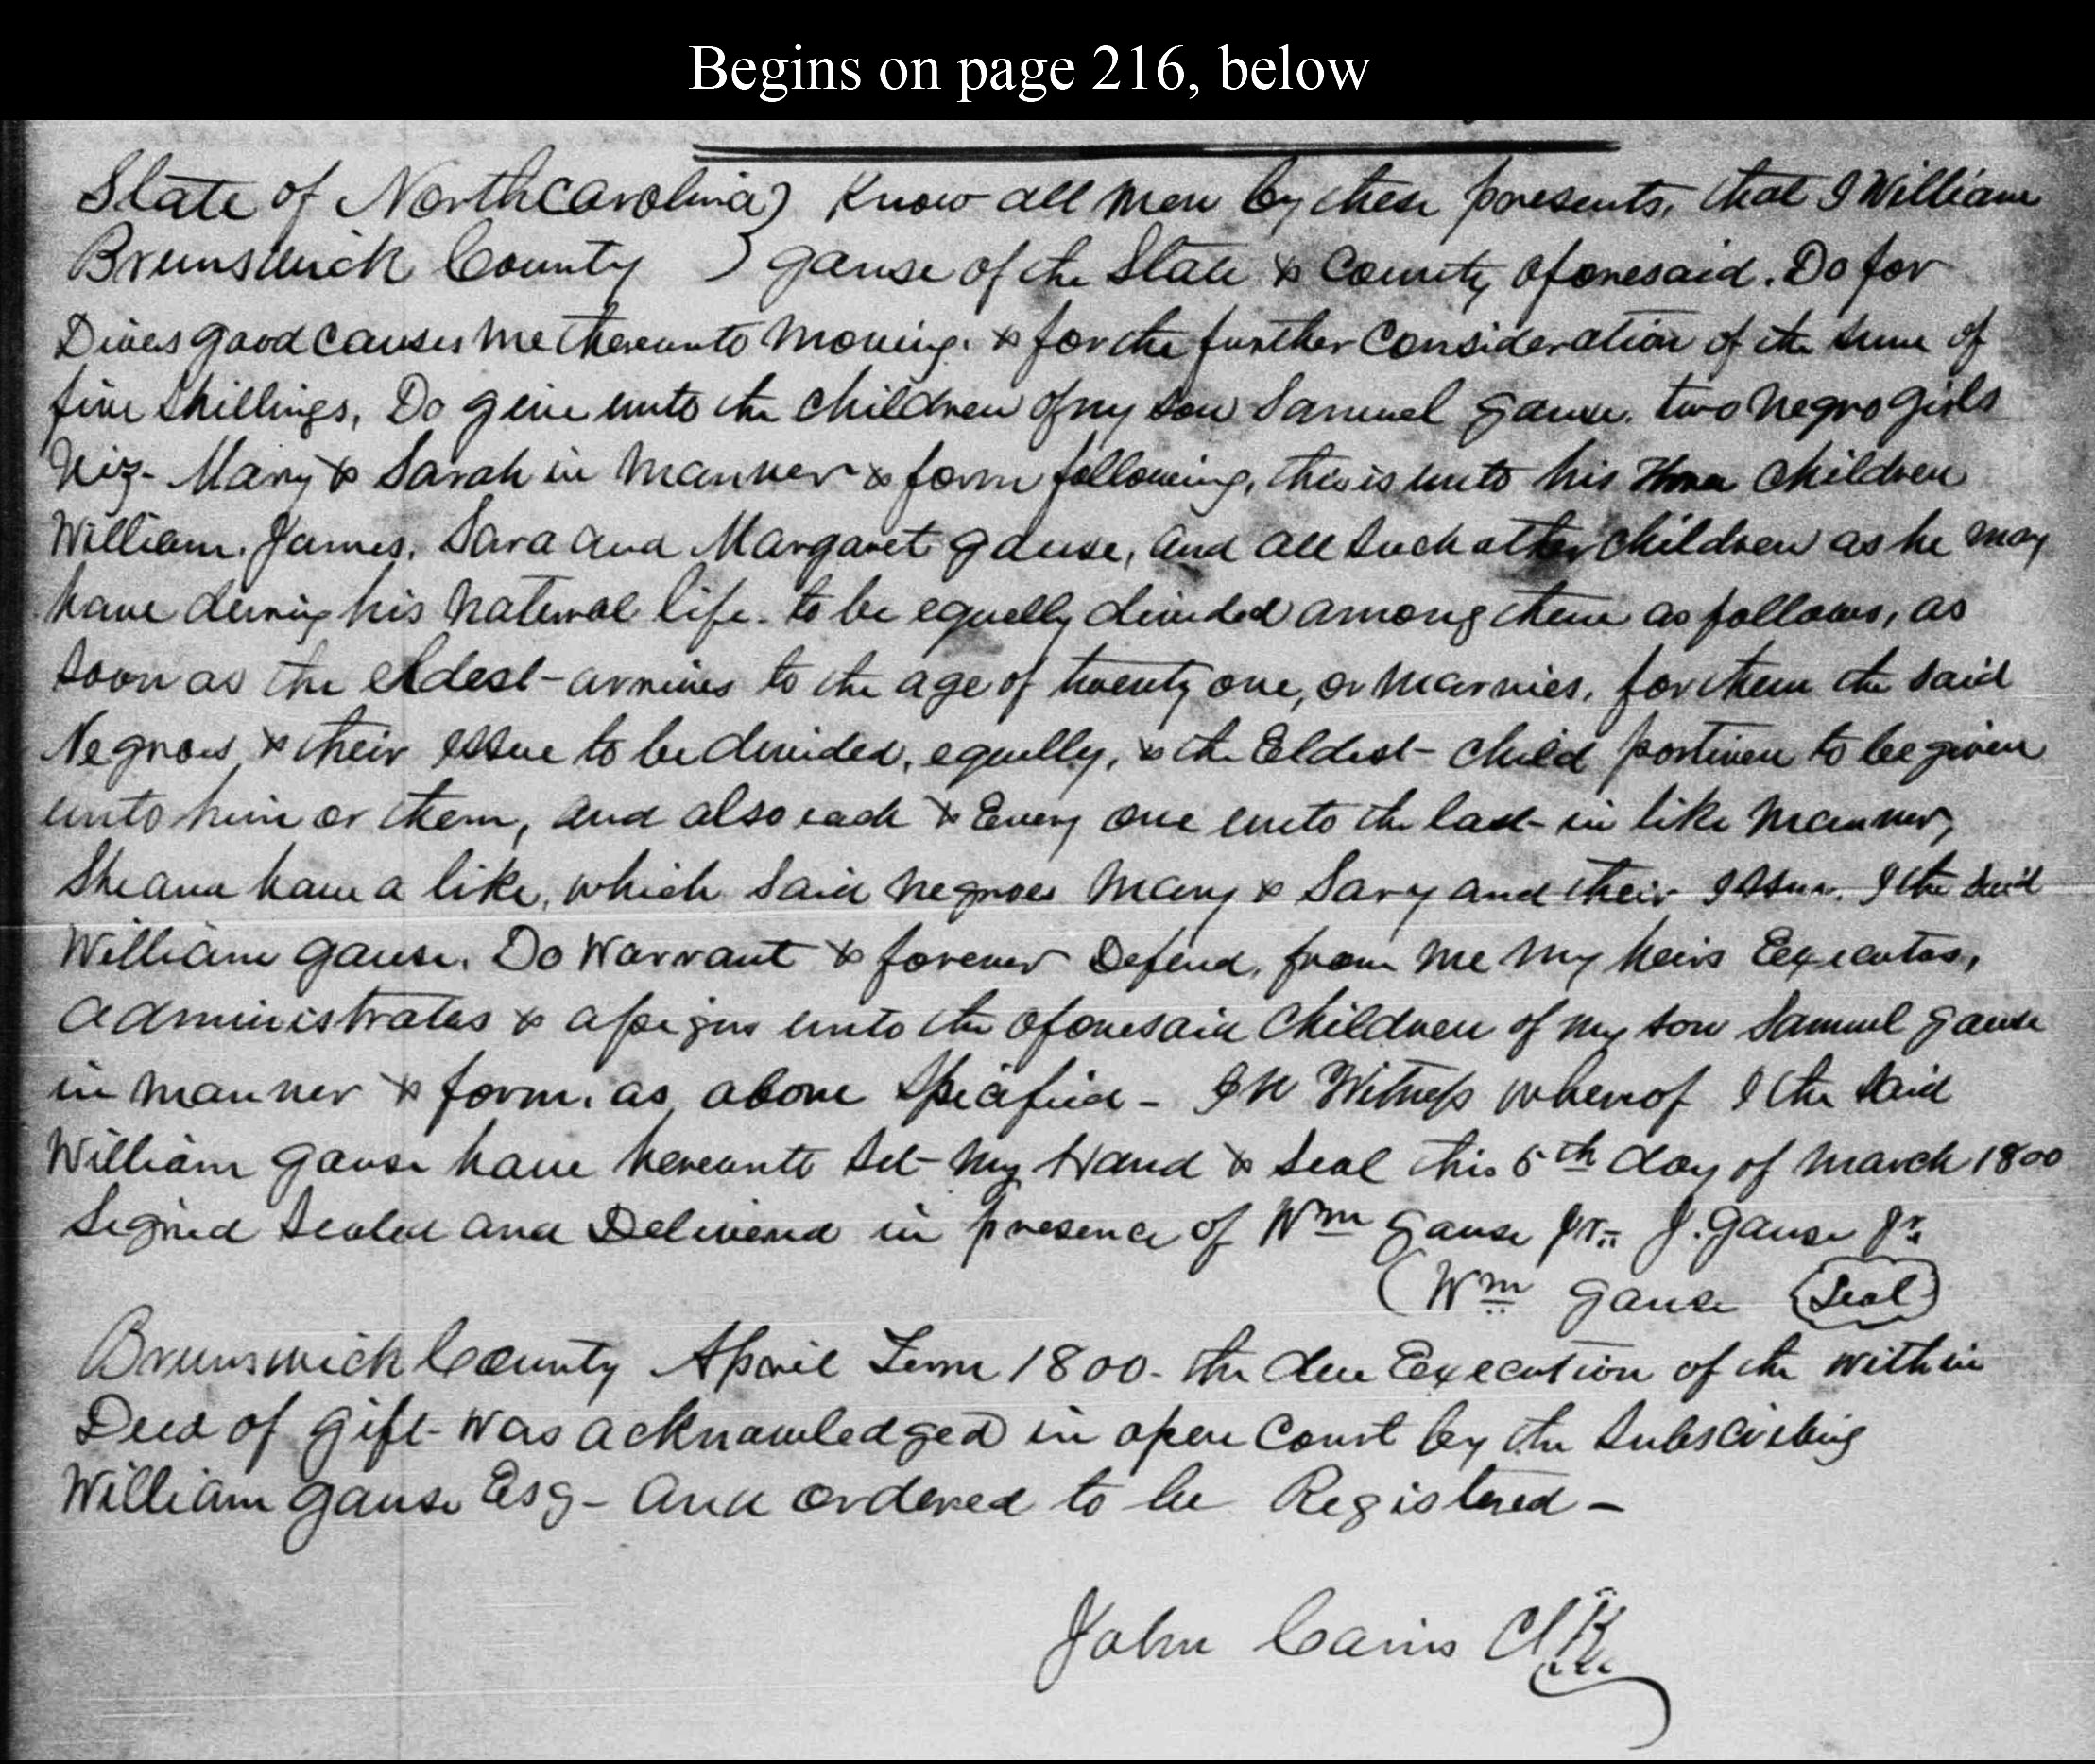 Begins on page 216, below
State of Northcarolina) Know all men by these presents, that I William
Brunswick County ) gause of the State & County aforesaid. Do for
Divers good causes me thereunto moving. & for the further Consideration of the sum of
five shillings, Do give unto the children of my son Samuel gause. two negro girls
Viz- Mary & Sarah in manner & form following, this is unto his children
William. James. Sara and Margaret gause, and all such other children as he may
have during his natural life. to be equelly divided among them as follows, as
soon as the eldest - arrives to the age of twenty one, or marries, for them the said
Negroes & their essue to be divided, equelly, & the Eldest - child portion to be given
unto him or them, and also each & Every one unto the last - in like manner,
have a like, which said negroes Mary & Sary and their Issue. I the said
William gause. Do Warrant & forever Defend, from me my heirs Executos,
administrates & assigns unto the aforesaid Children of my son Samuel gause
in manner & form. as above specified - In Witness whereof I the said
William gause have hereunto set - my Hand & Seal this 5th day of march 1800
Signed Sealed and Delivered in presence of Wm gause Jr. J. gause Jr.
(Wm gause (Seal)
Brunswick County April Term 1800 - the due Execution of the within
Deed of gift - was acknowledged in open Court by the subscribing
William gause Esq - and ordered to be Registered -
John Cains Clk